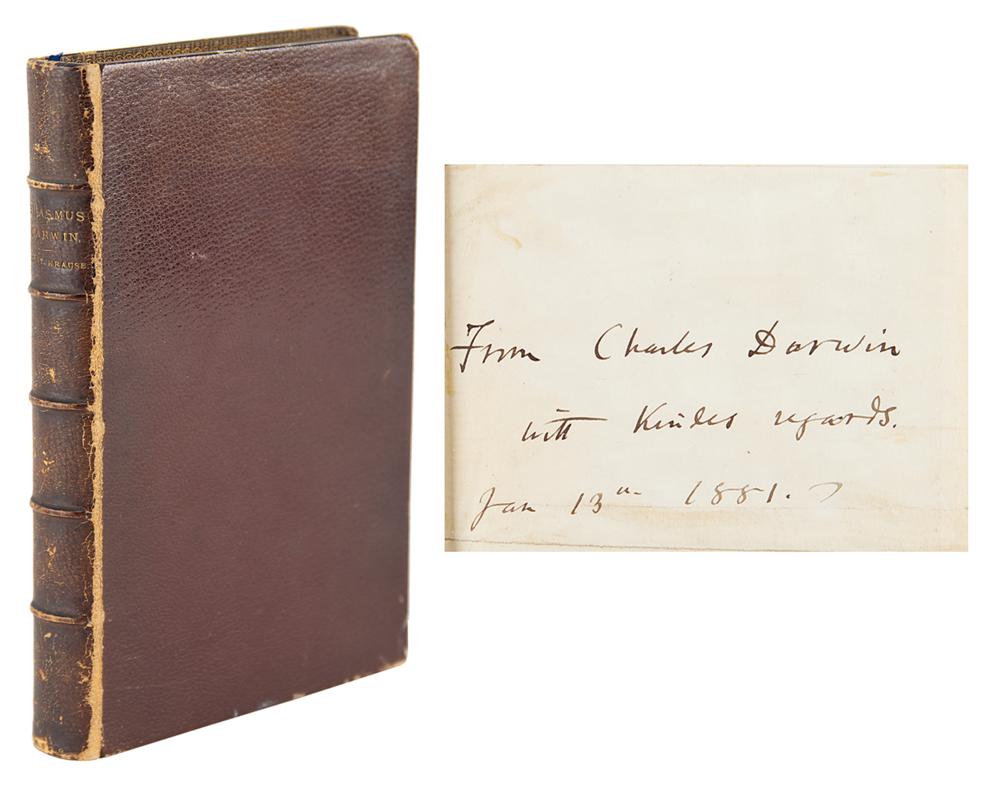 RASMUS
DARWIN.
KRAUSE.
From Charles Darwin
with Kindest regards.
Jan 13th 1881.